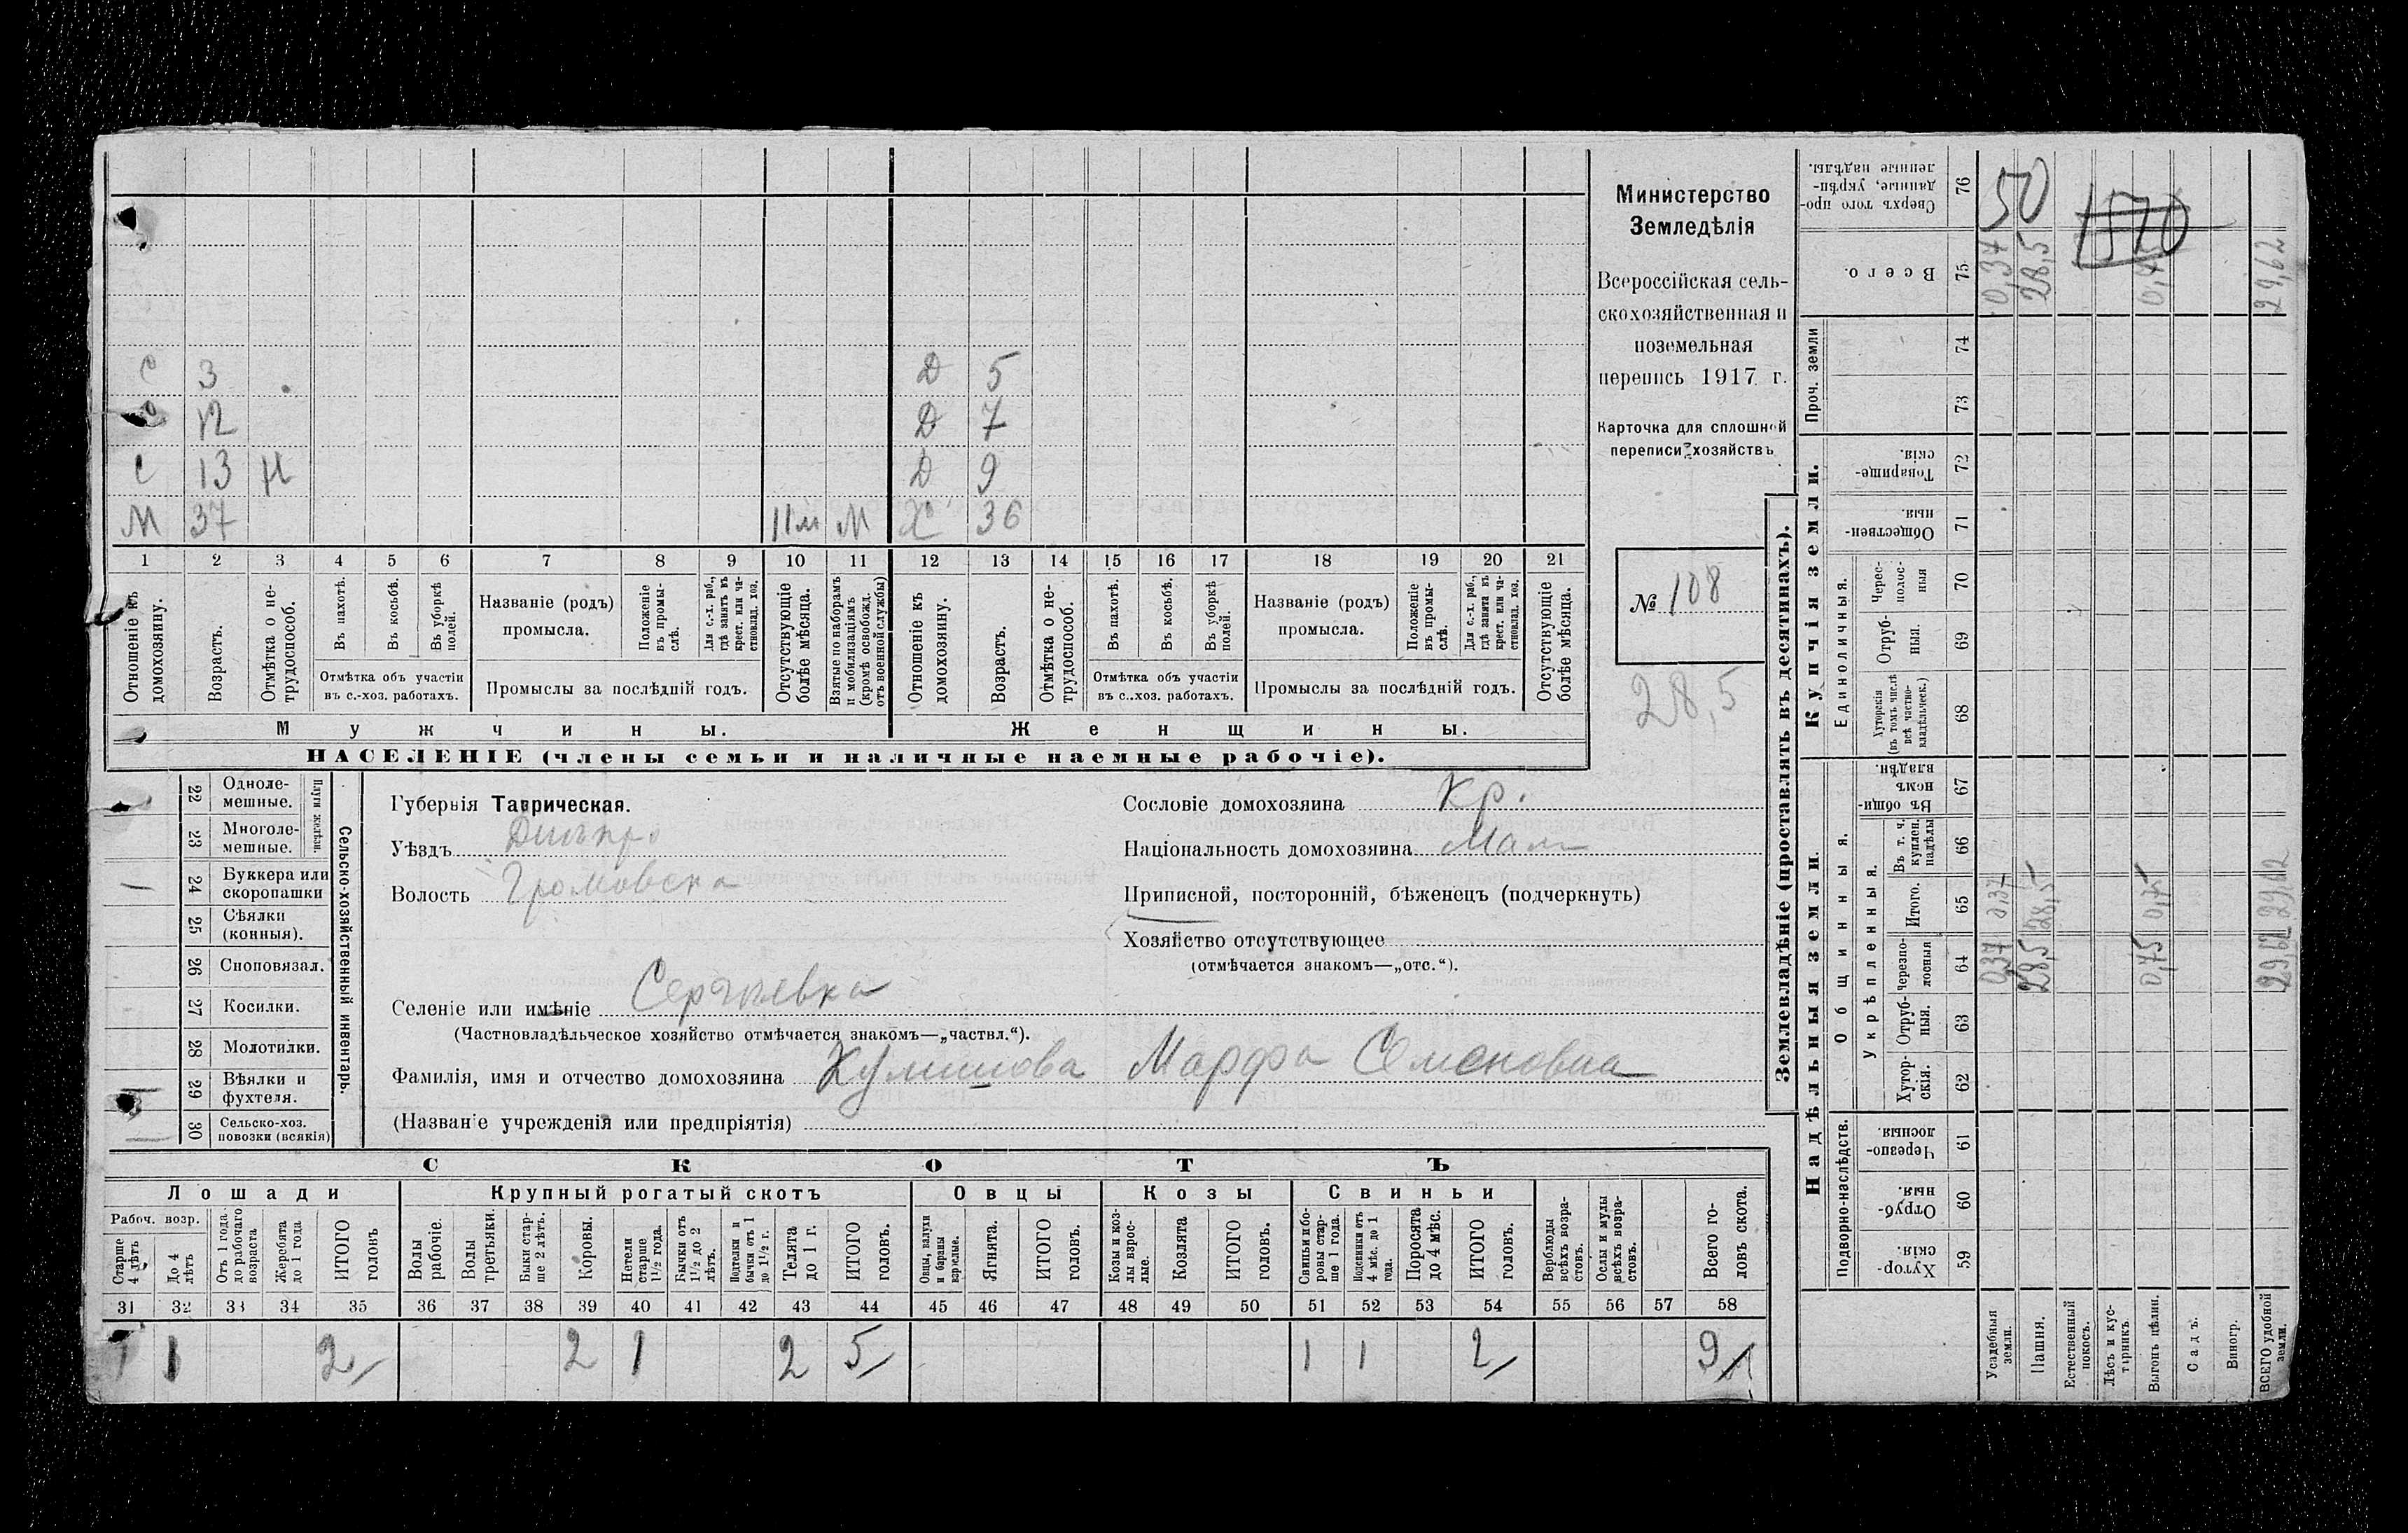 С 3 Д 5
С 12 Д 7
С 13 Н Д 9
М 37 11м М Х 36
1 2 3 4 5 6 7 8 9 10 11 12 13 14 15 16 17 18 19 20 21
Отношеніе къ домохозяину.
Возрастъ.
Отмѣтка о не-
трудоспособ.
Въ пахотѣ.
Въ косьбѣ.
Въ уборкѣ
полей.
Отмѣтка объ участіи
въ с.-хоз. работахъ.
Названіе (родъ)
промысла.
Положеніе
въ промы-
слѣ.
Для с.-х. раб.,
гдѣ занятъ въ
крест. или ча-
стновлад. хоз.
Промыслы за послѣдній годъ.
Отсутствующіе
болѣе мѣсяца.
Взятые по наборамъ
и мобилизаціямъ
(кромѣ освобожд.
отъ военной службы)
Отношеніе къ
домохозяину.
Возрастъ.
Отмѣтка о не-
трудоспособ.
Въ пахотѣ.
Въ косьбѣ.
Въ уборкѣ
полей.
Отмѣтка объ участіи
въ с..хоз. работахъ.
Названіе (родъ)
промысла.
Положеніе
въ промы-
слѣ.
Для с.-х. раб.,
гдѣ занята въ
крест. или ча-
стновлад. хоз.
Промыслы за послѣдній годъ.
Отсутствующіе
болѣе мѣсяца.
Мужчины.
Женщины.
НАСЕЛЕНІЕ (члены семьи и наличные наемные рабочіе).
Министерство
Земледѣлія
Всероссійская сель-
скохозяйственная и
поземельная
перепись 1917 г.
Карточка для сплошной
переписи хозяйствъ
№ 108
28,5
22 Одноле-
мешные.
23 Многоле-
мешные.
Плуги желѣзн.
24 Буккера или
скоропашки
25 Сѣялки
(конныя).
26 Сноповязал.
27 Косилки.
28 Молотилки.
29 Вѣялки и
фухтеля.
30 Сельско-хоз.
повозки (всякія)
Сельско-хозяйственный инвентарь.
Губернія Таврическая.
Уѣздъ Днѣпро
Волость Громовска
Селеніе или имѣніе Сергѣевка
(Частновладѣльческое хозяйство отмѣчается знакомъ—„частвл.“).
Фамилія, имя и отчество домохозяина Марфа Семеновна
(Названіе учрежденія или предпріятія)
Сословіе домохозяина Кр.
Національность домохозяина Мал
Приписной, посторонній, бѣженецъ (подчеркнуть)
Хозяйство отсутствующее
(отмѣчается знакомъ—„отс.“).
СКОТЪ
Лошади
Крупный рогатый скотъ
Овцы
Козы
Свиньи
Рабоч. возр.
Старше
4 лѣтъ
До 4
лѣтъ
Отъ 1 года
до рабочаго
возраста
Жеребята
до 1 года
ИТОГО
головъ
Волы
рабочіе.
Волы
третьяки.
Быки стар-
ше 2 лѣтъ.
Коровы.
Нетели
старше
1½ года.
Бычки отъ
1½ до 2
лѣтъ.
Подтелки и
бычки отъ 1
до 1½ г.
Телята
до 1 г.
ИТОГО
головъ.
Овцы, валухи
и бараны
взрослые.
Ягнята.
ИТОГО
головъ.
Козы и коз-
лы взрос-
лые.
Козлята
ИТОГО
головъ.
Свиньи и бо-
ровы стар-
ше 1 года.
Подсвинки отъ
4 мѣс. до 1
года.
Поросята
до 4 мѣс.
ИТОГО
головъ.
Верблюды
всѣхъ возра-
стовъ.
Ослы и мулы
всѣхъ возра-
стовъ.
Всего го-
ловъ скота.
31 32 33 34 35 36 37 38 39 40 41 42 43 44 45 46 47 48 49 50 51 52 53 54 55 56 57 58
1 1 2 2 1 2 5 1 1 2 9
Землевладѣніе (проставлять въ десятинахъ).
Надѣльныя земли.
Купчія земли.
Проч. земли
Подворно-наслѣдств.
Общинныя.
Укрѣпленныя.
Единоличныя.
Хутор-
скія. 59
Отруб-
ныя. 60
Черезпо-
лосныя. 61
Хутор-
скія. 62
Отруб-
ныя. 63
Черезпо-
лосныя 64
Итого. 65
Въ т. ч.
куплен.
надѣлы 66
Въ общи-
номъ
владѣн. 67
Хуторскія
(въ томъ числѣ
всѣ частно-
владѣльческ.) 68
Отруб-
ныя. 69
Черес-
полос-
ныя 70
Обществен-
ныя. 71
Товарище-
скія. 72
73
74
Всего. 75
Сверхъ того про-
данные, укрѣп-
ленные надѣлы. 76
Усадебныя
земли. 0,37 0,37 0,37
Пашня. 28,5 28,5 28,5 50
Естественный
покосъ.
Лѣсъ и кус-
тарникъ.
Выгонъ цѣлин. 0,75 0,75 0,75
Садъ.
Виногр.
ВСЕГО удобной
земли. 29,62 29,62 29,62
1570